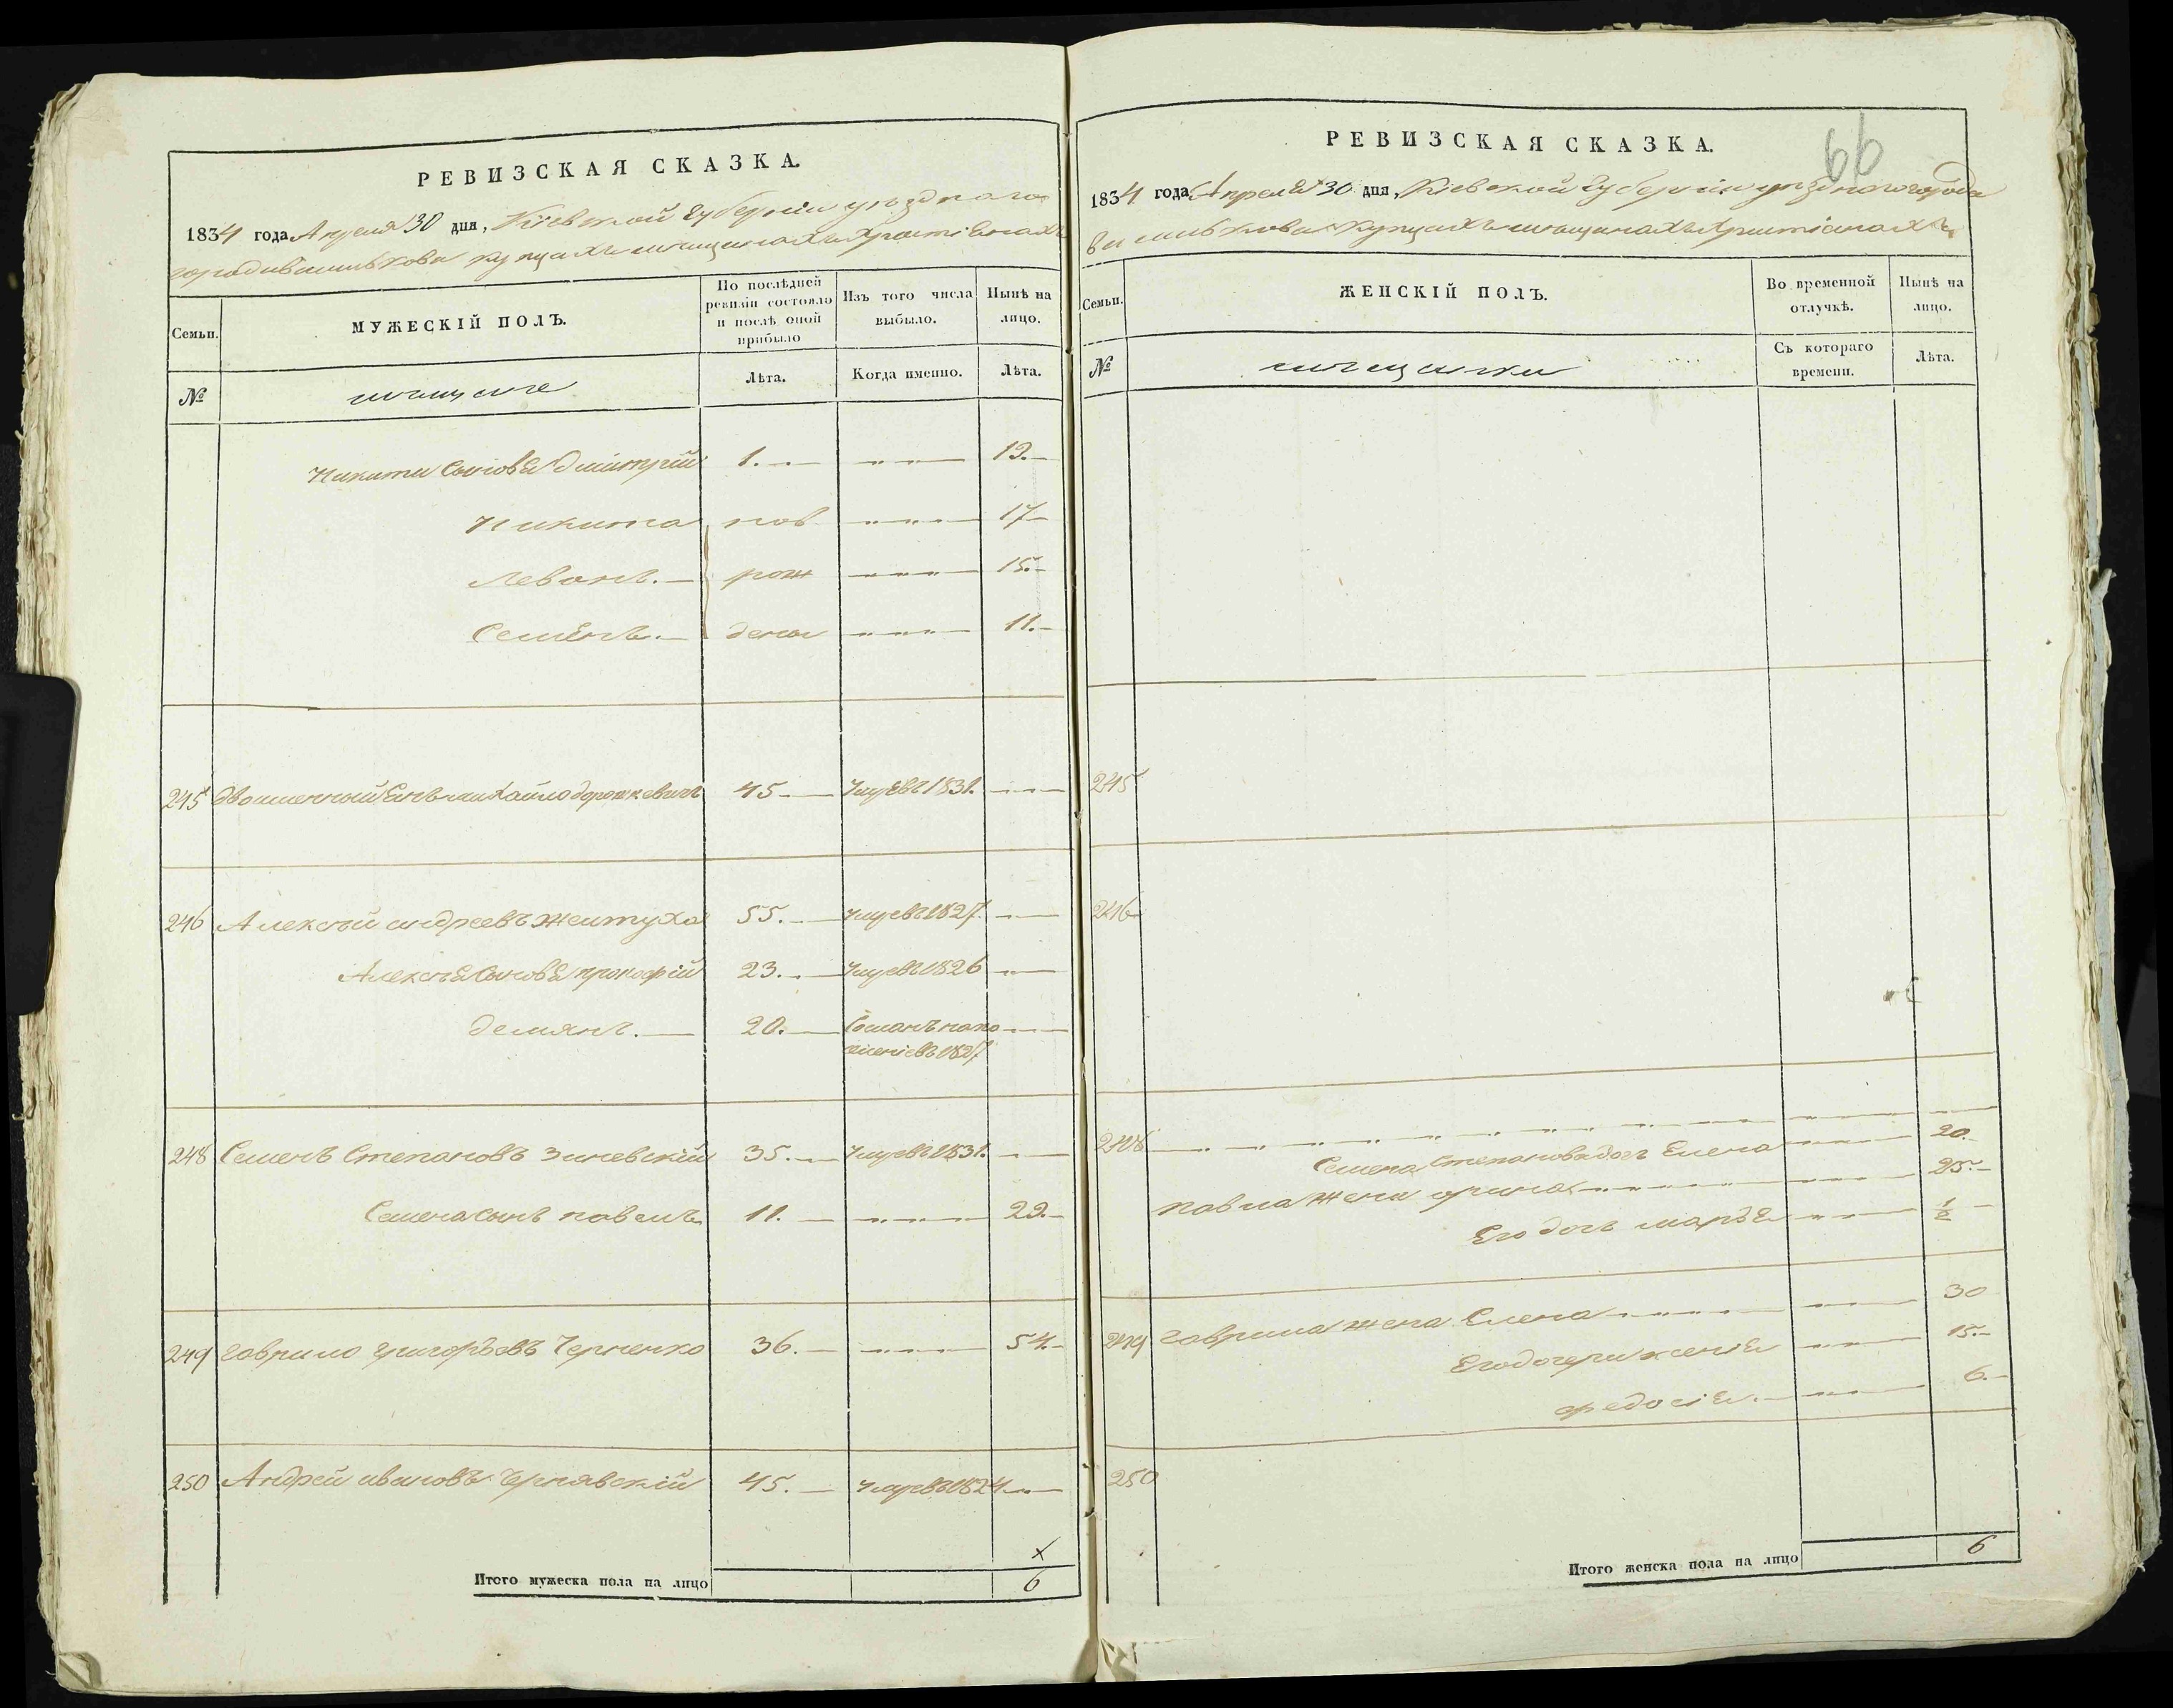 РЕВИЗСКАЯ СКАЗКА.
1834 года Апреля 30 дня, Кіевской Губерніи уѣзднаго
города василькова купцахъ мѣщанахъ христіянахъ
Семьи.
МУЖЕСКІЙ ПОЛЪ.
По послѣдней ревизіи состояло и послѣ оной прибыло
Изъ того числа выбыло.
Нынѣ на лицо.
№
мѣщане
Лѣта.
Когда именно.
Лѣта.
Никиты Сыновя Дмитрій 1. 19.
Никита нов 17
Леванъ. рож 15.
Семенъ. дены 11.
245 михайло дорошкевичъ 45 Умре въ 1831.
246 Алексѣй андреевъ Желтуха 55. Умре въ 1827.
Алексѣя Сыновя прокофій 23. Умре въ 1826
демянъ. 20. 1827
248 Семенъ Степановъ Зиневскій 35. Умре въ 1831.
Семена Сынъ павелъ 11. 29.
249 гаврило григорьевъ Черненко 36. 54.
250 Андрей ивановъ Чернявскій 45. Умре въ 1824
х
Итого мужеска пола на лицо 6
66
РЕВИЗСКАЯ СКАЗКА.
1834 года Апреля 30 дня, Кіевской Губерніи уѣзднаго города
василькова купцахъ мѣщанахъ христіянахъ
Семьи.
ЖЕНСКІЙ ПОЛЪ.
Во временной отлучкѣ.
Нынѣ на лицо.
№
мѣщанки
Съ котораго времени.
Лѣта.
245
246
248
Семена Степанова доч Елена 20.
павла жена орина 25.
Его доч марья 1/2
249 гаврила жена Елена 30
Его дочери ксенія 15.
федосія. 6.
250
Итого женска пола на лицо 6